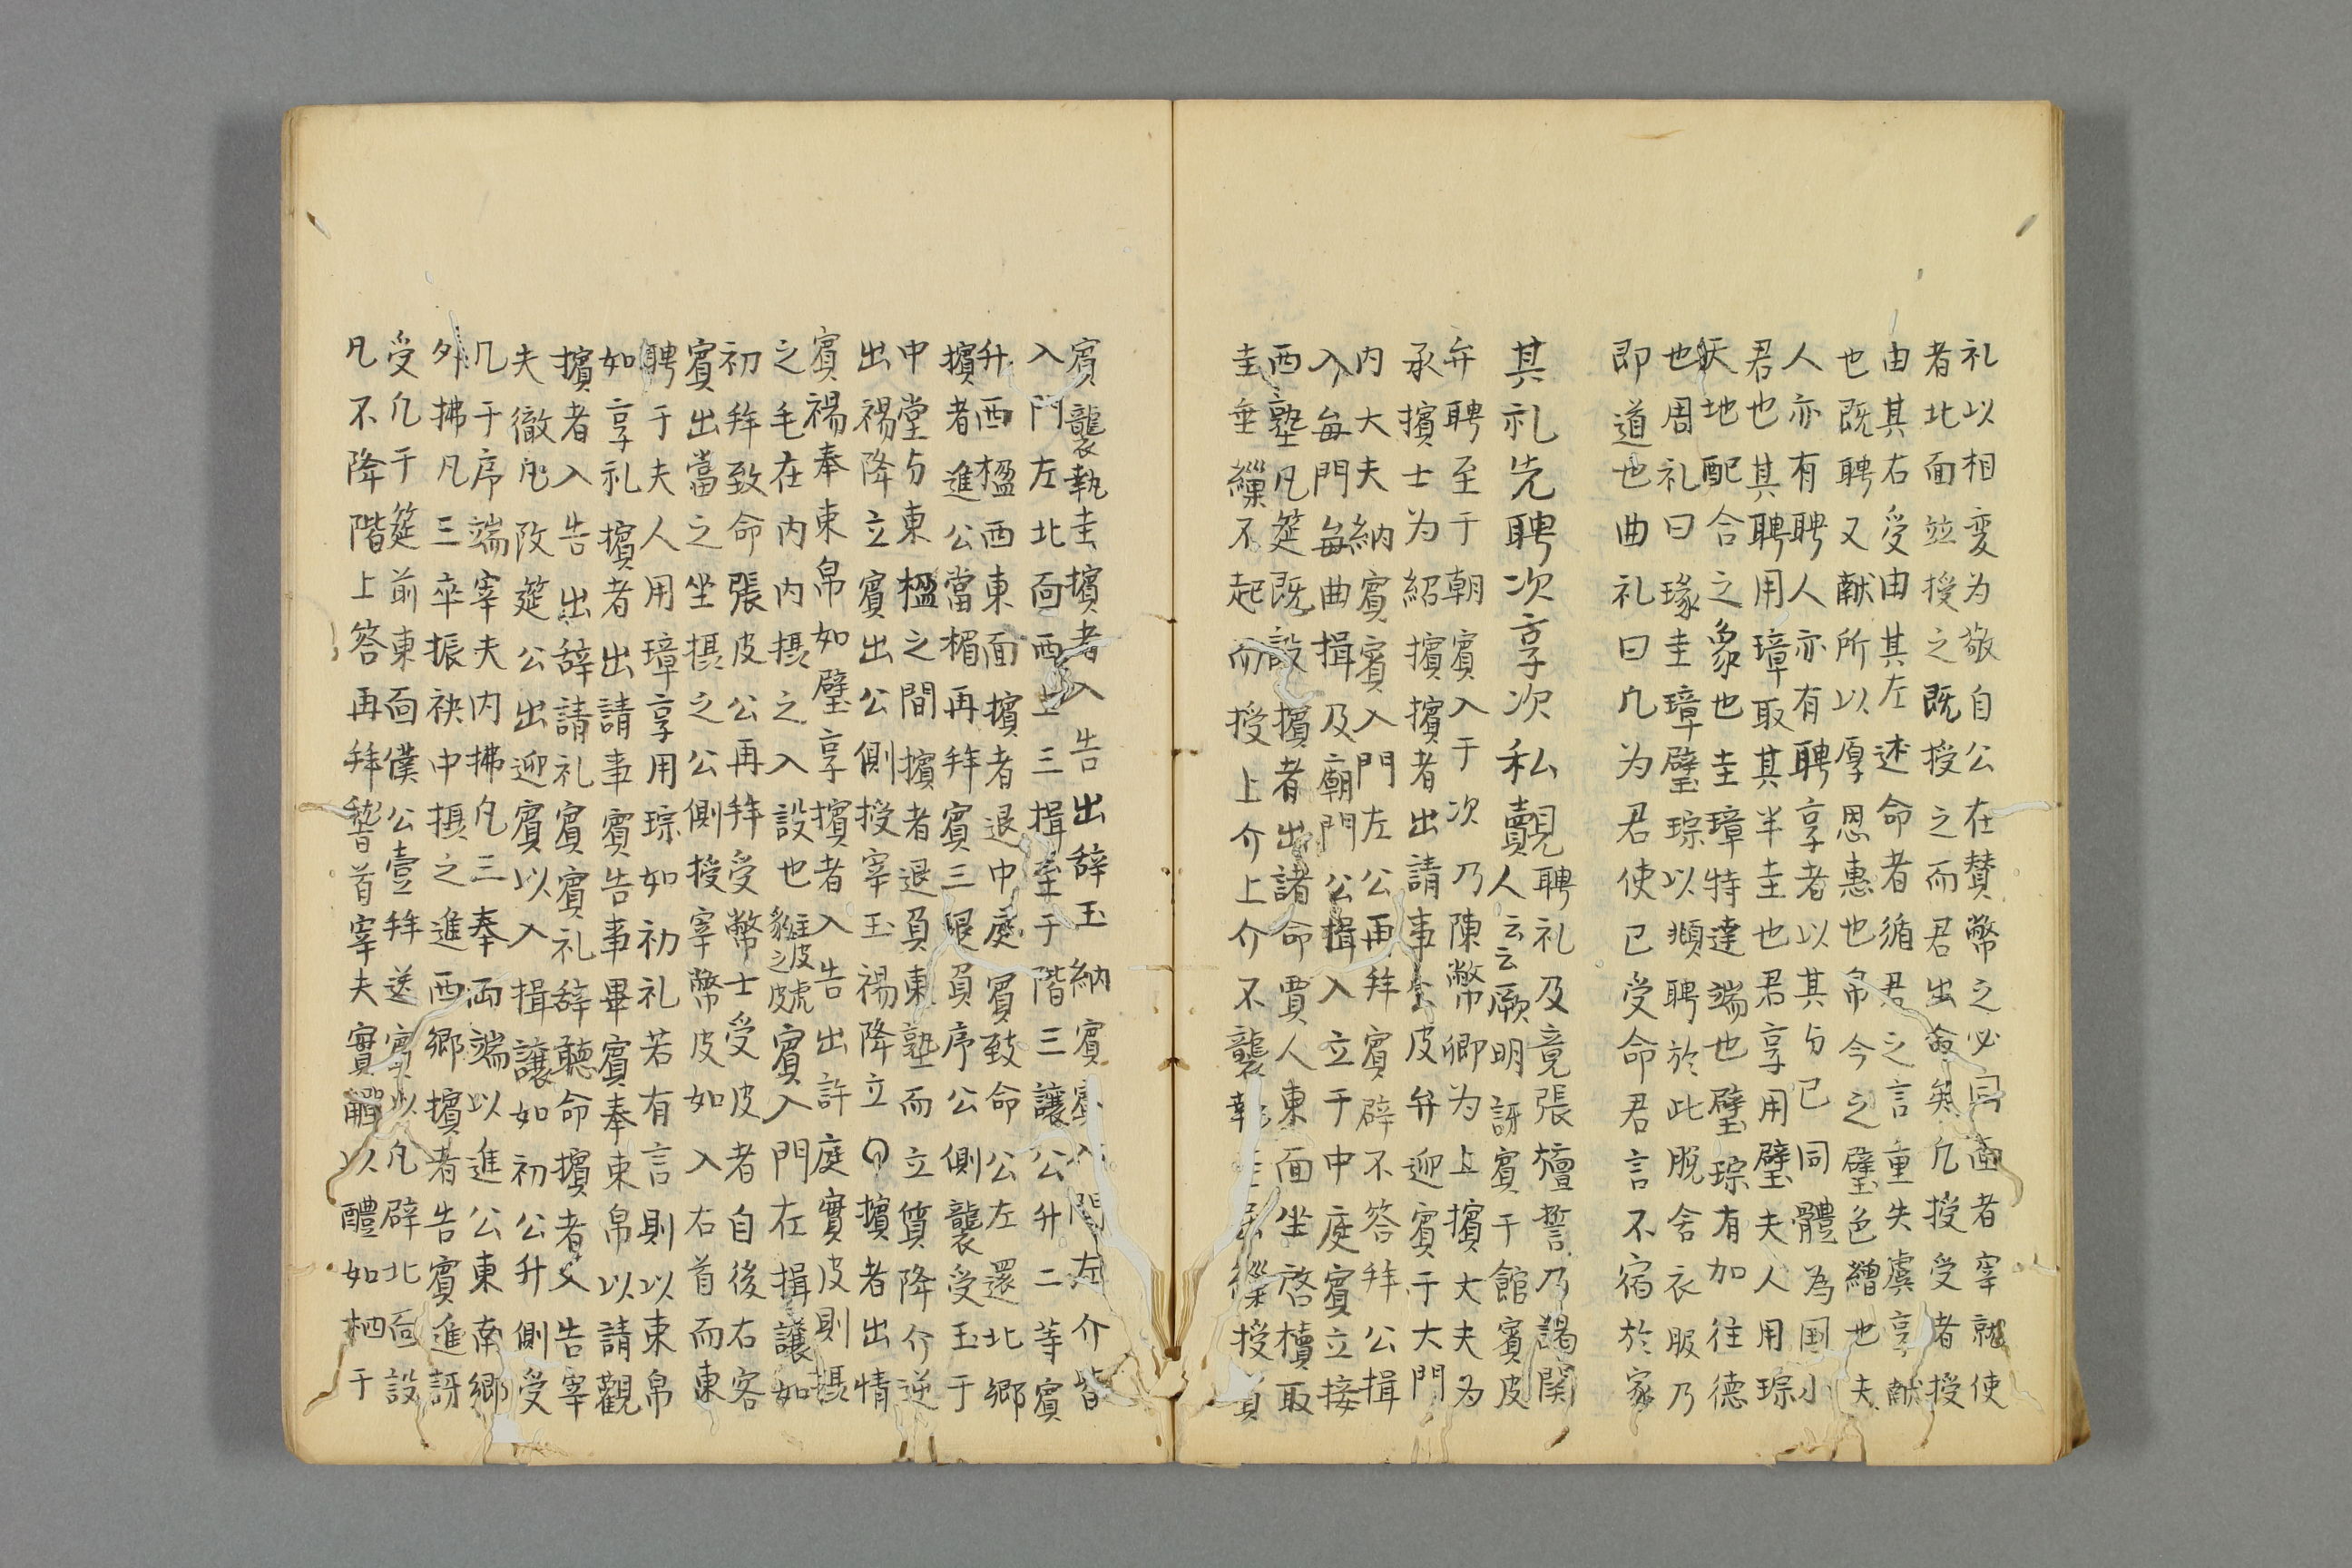 礼以相変为敬自公在賛幣之必同面者宰就使
者北面並授之既授之而君出命矣凡授受者授
由其右受由其左述命者循君之言重失虞享献
也既聘又献所以厚恩惠也帛今之璧色繒也夫
人亦有聘人亦有聘享者以其与己同體為国小
君也其聘用璋取其半圭也君享用璧夫人用琮
天地配合之象也圭璋特達端也璧琮有加往德
也周礼曰瑑圭璋璧琮以頫聘於此脫舍衣服乃
即道也曲礼曰凢为君使已受命君言不宿於家
其礼先聘次享次私覿聘礼及竟張旜誓乃謁関
人云云厥明訝賓于館賓皮
弁聘至于朝賓入于次乃陳幣卿为上擯大夫为
承擯士为紹擯擯者出請事公皮弁迎賓于大門
内大夫納賓賓入門左公再拜賓辟不答拜公揖
入每門每曲揖及廟門公揖入立于中庭賓立接
西塾凡筵既設擯者出請命賈人東面坐啓櫝取
圭垂繅不起而授上介上介不襲執圭屈繅授賓
賓襲執圭擯者入告出辞玉納賓賓入門左介皆
入門左北面西上三揖至于階三讓公升二等賓
升西楹西東面擯者退中庭賓致命公左還北鄉
擯者進公當楣再拜賓三退負序公側襲受玉于
中堂与東楹之間擯者退負東塾而立賓降介逆
出裼降立賓出公側授宰玉裼降立擯者出情
賓裼奉束帛如璧享擯者入告出許庭實皮則摂
之毛在内内摂之入設也皮虎豹之皮賓入門左揖讓如
初拜致命張皮公再拜受幣士受皮者自後右客
賓出當之坐摂之公側授宰幣皮如入右首而東
聘于夫人用璋享用琮如初礼若有言則以束帛
如享礼擯者出請事賓告事畢賓奉束帛以請觀
擯者入告出辞請礼賓賓礼辞聽命擯者入告宰
夫徹凢改筵公出迎賓以入揖讓如初公升側受
几于序端宰夫内拂凡三奉両端以進公東南鄉
外拂凡三卒振袂中摂之進西鄉擯者告賓進訝
受凢于筵前東面僕公壹拜送賓以凡辟北面設
凡不降階上答再拜稽首宰夫實觶以醴如柶于